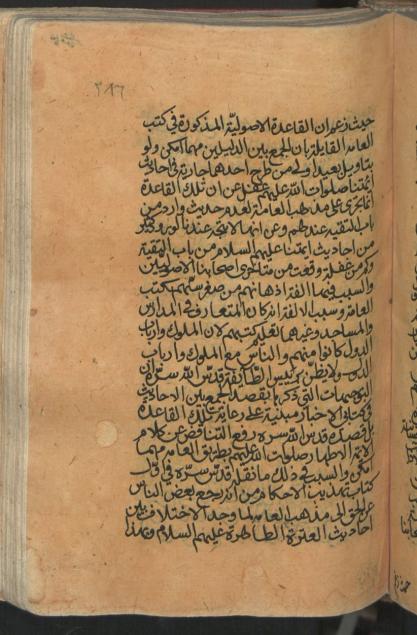 ٢٨٦
حيث زعم ان القاعدة الاصولية المذكورة في كتب
العامة القايلة بان الجمع بين الدليلين مهما امكن ولو
بتاويل بعيد اولى من طرح احدهما جارية في احاديث
ائمتنا صلوات الله عليهم وغفل عن ان تلك القاعدة
انما تجرى على مذهب العامة لعدم حديث وارد من
باب التقية عندهم وعن انها لا تتجه عندنا لورود كثير
من احاديث ائمتنا عليهم السلام من باب التقية
وكم من غفلة وقعت من متاخرى اصحابنا الاصوليين
والسبب فيها الفة اذهانهم من صغر سنهم بكتب
العامة وسبب الالفة انه كان المتعارف في المدارس
والمساجد وغيرهما تعليم كتبهم لان الملوك وارباب
الدول كانوا منهم والناس مع الملوك وارباب
الدول ولا يظن برئيس الطائفة قدس الله سره ان
التوجيهات التي ذكرها بقصد الجمع بين الاحاديث
في كتابي الاخبار مبنية على رعاية تلك القاعدة
بل قصده قدس الله سره رفع التناقض عن كلام
الائمة الاطهار صلوات الله عليهم بطريق العامة مهما
امكن والسبب في ذلك ما نقله قدس سره في اول
كتاب تهذيب الاحكام من انه رجع بعض الناس
عن الحق الى مذهب العامة لما وجد الاختلاف بين
احاديث العترة الطاهرة عليهم السلام